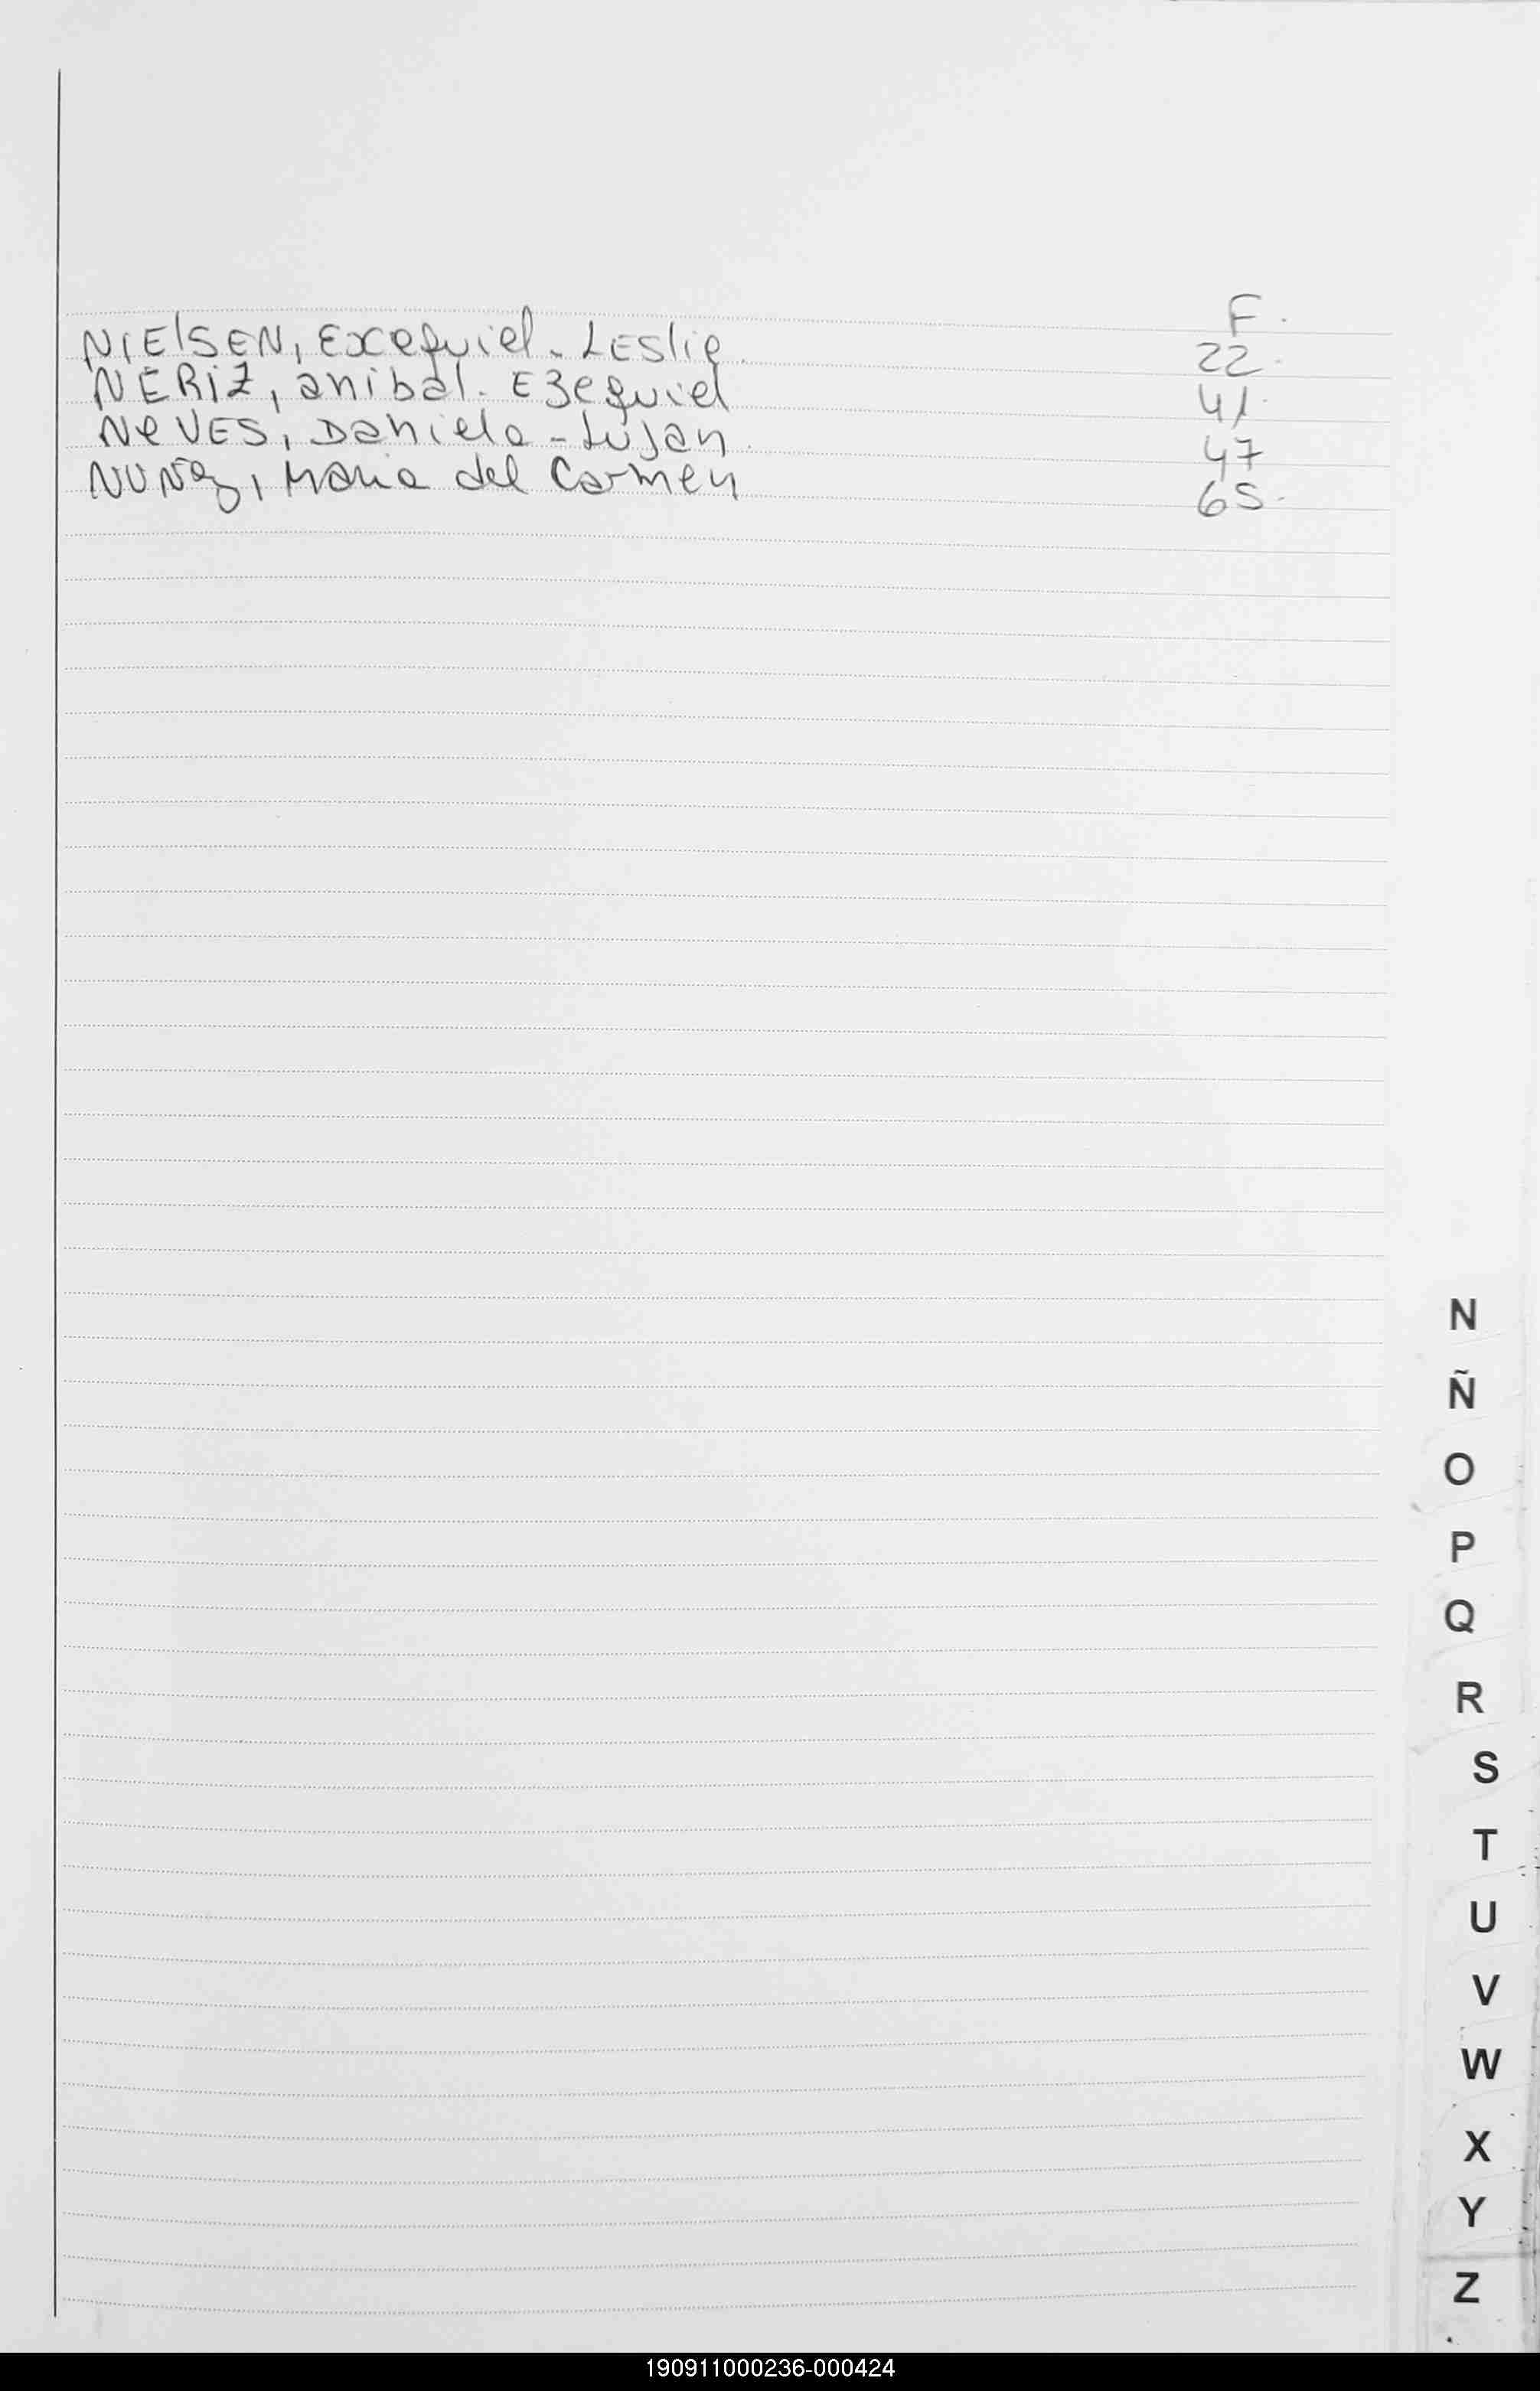 F.
NIElSEN, Excequiel. LESlie. 22.
NERiZ, anibal. EzeQuiel 41.
NeVES, Daniela - Lujan. 47
NUÑez, Maria del Carmen 65.
N
Ñ
O
P
Q
R
S
T
U
V
W
X
Y
Z
190911000236-000424